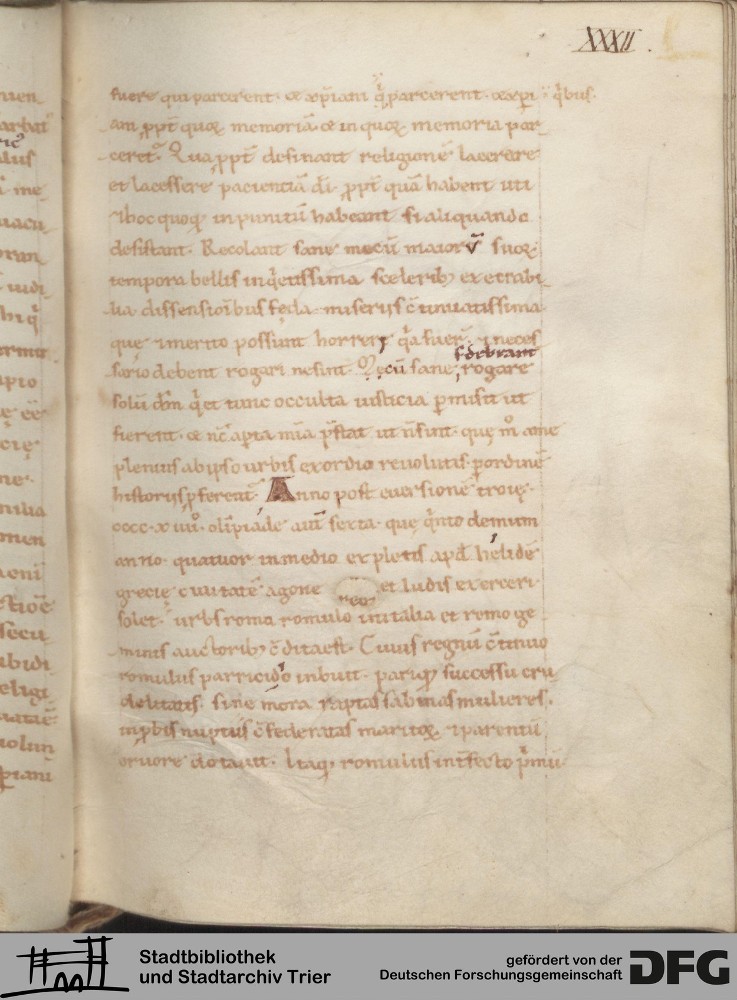 XXXII.
fuere qui parcerent. & xp̄iani q̄ parcerent. & xp̄i q̄bus.
am ꝓpt̄ quoꝝ memoriā & in quoꝝ memoria par
ceret᷑. Qua ꝓpt̄ desinant religionē lacerare
et lacessere pacientiā d̄i ꝓpt̄ quā habent uti
& hoc quoq; inpunitū habeant si aliquando
desistant. Recolant sane mecū maiorū suoꝝ
tempora bellis inq̄etissima sceleribꝫ execrabi
lia dissensioībus feda miseriis c̄tinuatissima
que & merito possunt horrere q̄a fuer̄. & neces
s; debeant
sario debent rogari ne sint. Mecū sane rogare
solū d̄m q̄ et tunc occulta iusticia ꝑmisit ut
fierent. & nc̄ aꝑta mīa p̄stat ut n̄ sint. que m̊ a me
plenius ab ipso urbis exordio reuolutis ꝑ ordinē
historiis ꝓferent᷑. Anno post euersionē troię.
cccc.xiiii. olīpiade aut̄ sexta. que q̄nto demum
anno. quatuor in medio expletis apd̄ helidē
grecię ciuitatē agone et ludis exerceri
reo
solet. urbs roma romulo in italia et remo ge
minis auctoribꝫ c̄dita est. Cuius regnū c̄tinuo
romulus parricidio inbuit. pariq; successu cru
delitatis. sine mora raptas sabinas mulieres.
inꝓbis nuptiis c̄federatas maritoꝝ. & parentū
cruore dotauit. Itaq; romulus int̄fecto p̄mū
Stadtbibliothek
und Stadtarchiv Trier
gefördert von der
Deutschen Forschungsgemeinschaft
DFG